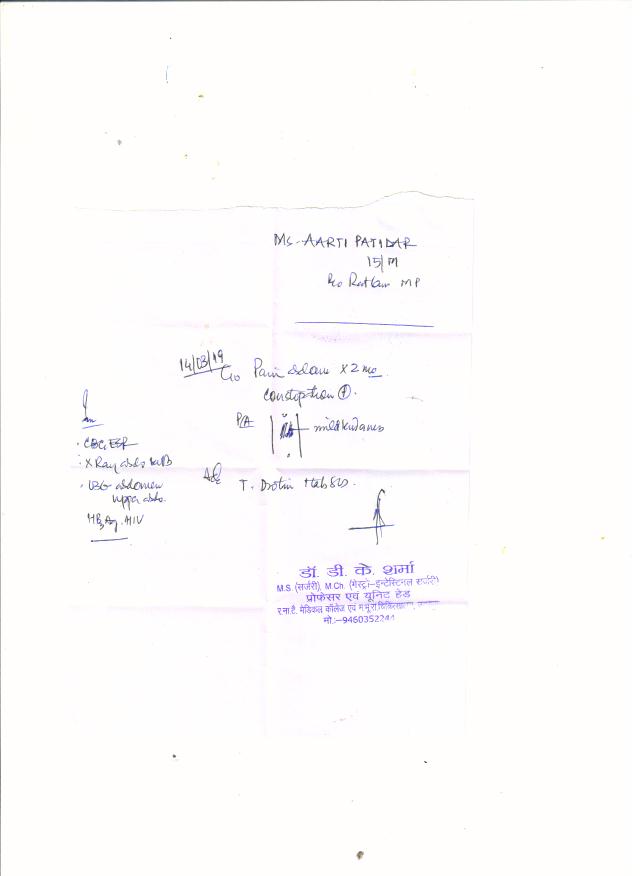 Ms. AARTI PATIDAR
15/M
R/o Ratlam MP
14/03/19
C/o Pain abdome x 2 mo
Constiption (+).
P/A
mild tenderness
Inv
. CBC, ESR
. X Ray abdo
. USG abdomen
upper abdo.
HBsAg, HIV
Adv
T. Drotin 1 tab SOS.
डॉ. डी. के. शर्मा
M.S. (सर्जरी), M.Ch. (गेस्ट्रो-इन्टेस्टिनल सर्जरी)
प्रोफेसर एवं यूनिट हेड
र.ना.टै. मेडिकल कॉलेज एवं म.भू.रा.चिकित्सालय,
मो.:-9460352244